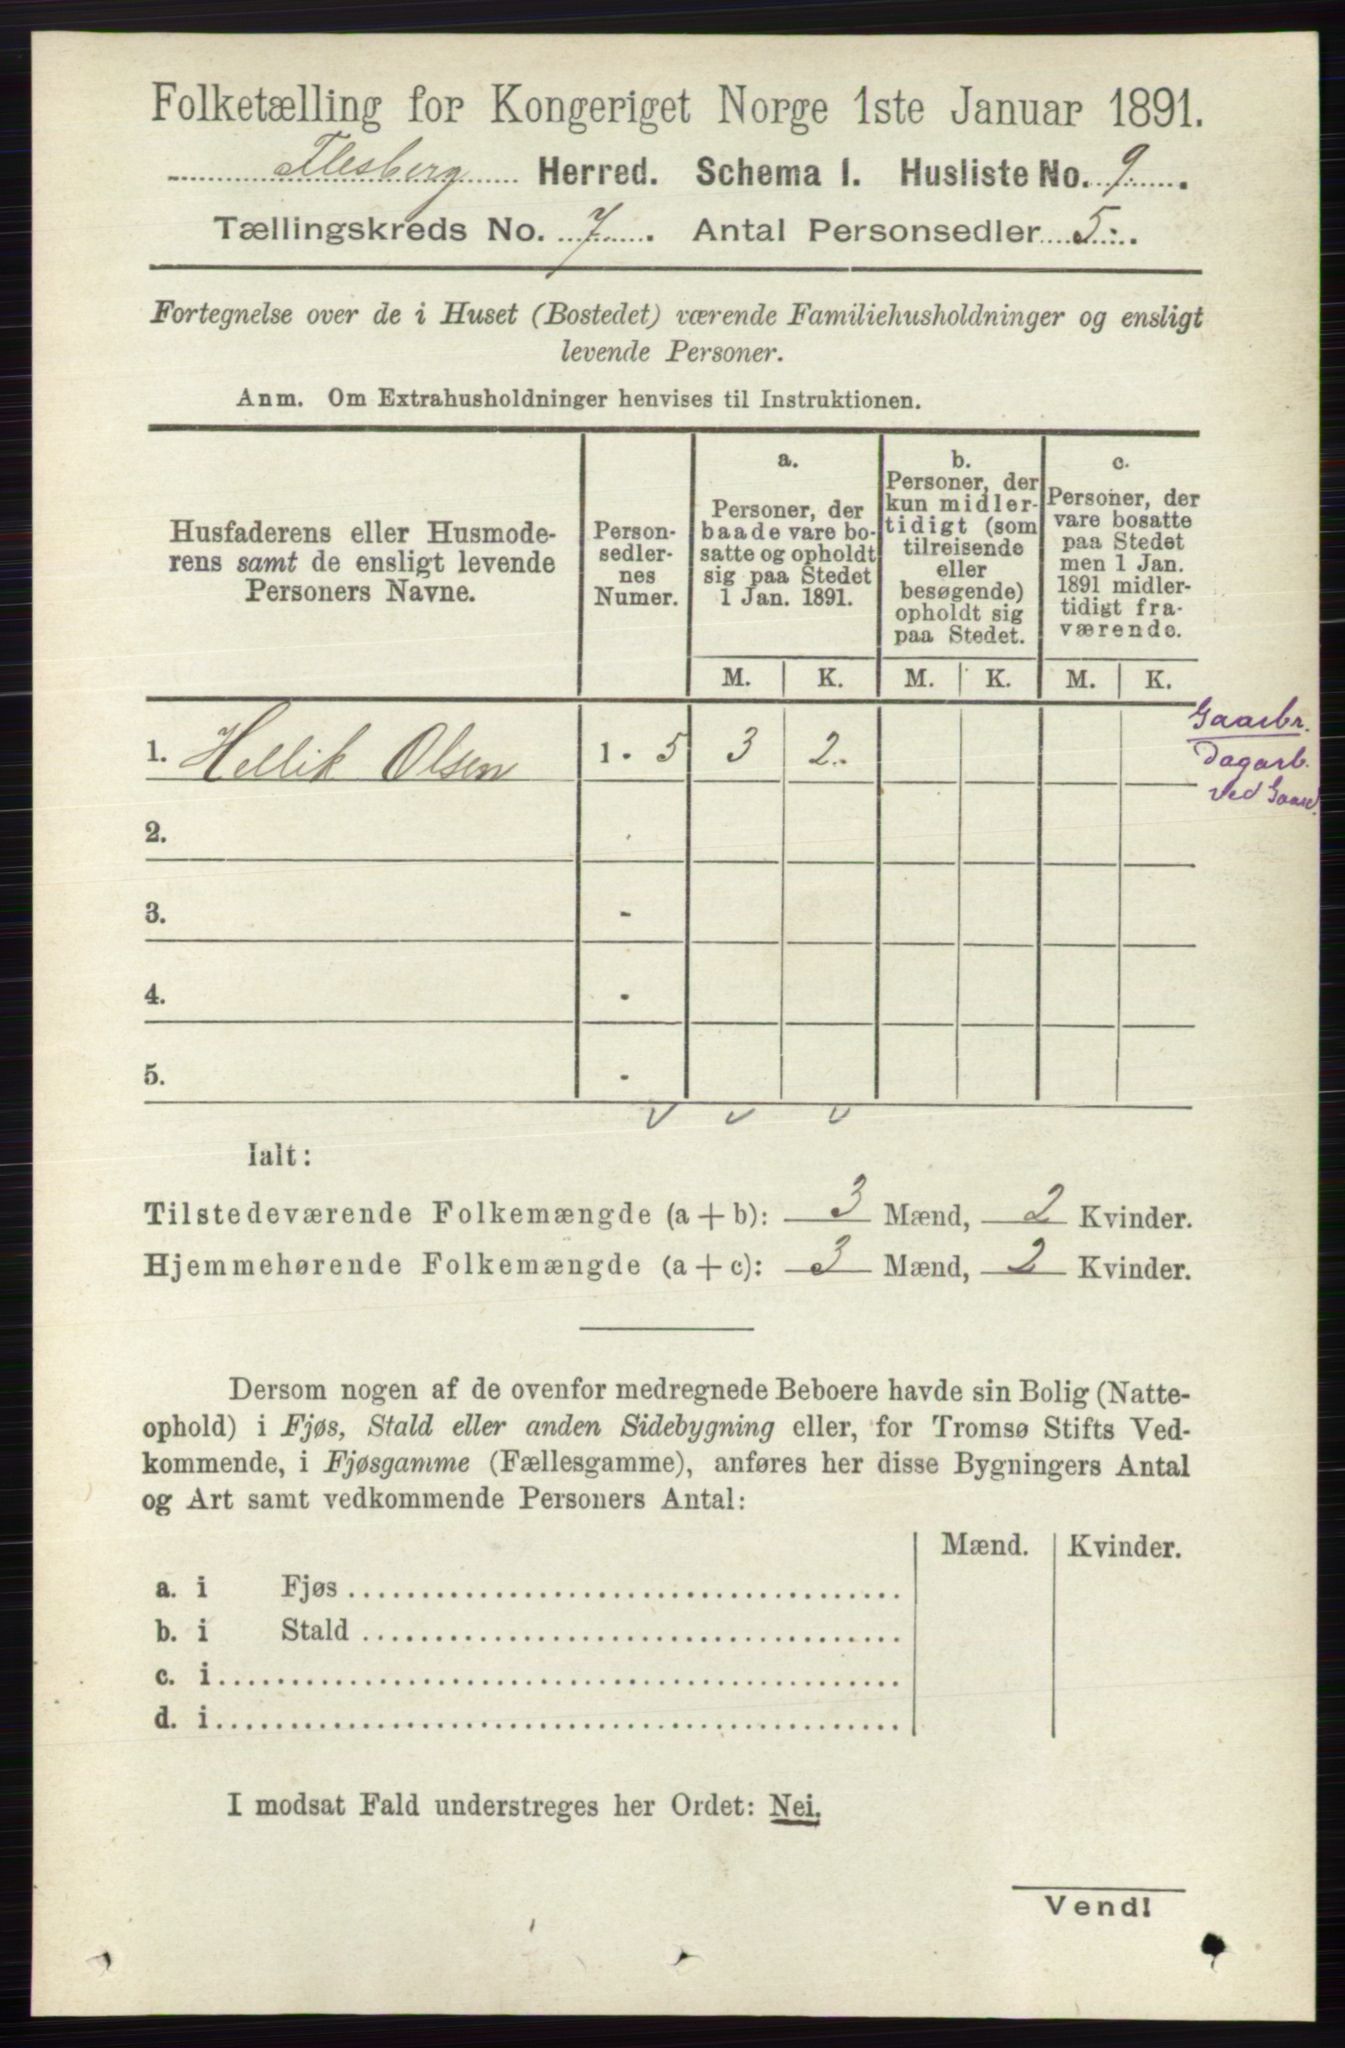 Folketælling for Kongeriget Norge 1ste Januar 1891.
Flesberg Herred. Schema I. Husliste No. 9.
Tællingskreds No. 7. Antal Personsedler 5.
Fortegnelse over de i Huset (Bostedet) værende Familiehusholdninger og ensligt
levende Personer.
Anm. Om Extrahusholdninger henvises til Instruktionen.
Husfaderens eller Husmode-
rens samt de ensligt levende
Personers Navne.
Person-
sedler-
nes
Numer.
a.
Personer, der
baade vare bo-
satte og opholdt
sig paa Stedet
1 Jan. 1891.
b.
Personer, der
kun midler-
tidigt (som
tilreisende
eller
besøgende)
opholdt sig
paa Stedet.
c.
Personer, der
vare bosatte
paa Stedet
men 1 Jan.
1891 midler-
tidigt fra-
værende.
M. K. M. K. M. K.
1. Hellik Olsen 1 - 5 3 2.
Gaarbr.
Dagarb.
ved Gaard.
2. -
3. -
4. -
5. -
Ialt:
Tilstedeværende Folkemængde (a + b): 3 Mænd, 2 Kvinder.
Hjemmehørende Folkemængde (a + c): 3 Mænd, 2 Kvinder.
Dersom nogen af de ovenfor medregnede Beboere havde sin Bolig (Natte-
ophold) i Fjøs, Stald eller anden Sidebygning eller, for Tromsø Stifts Ved-
kommende, i Fjøsgamme (Fællesgamme), anføres her disse Bygningers Antal
og Art samt vedkommende Personers Antal:
Mænd. Kvinder.
a. i Fjøs
b. i Stald
c. i
d. i
I modsat Fald understreges her Ordet: Nei.
Vend!